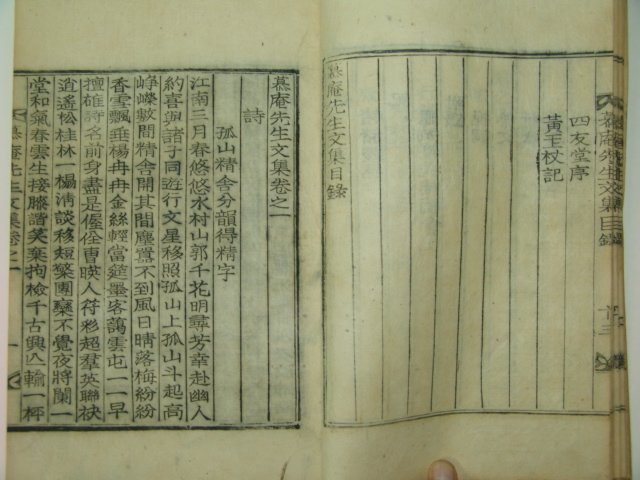 慕庵先生文集目錄
四友堂序
黃玉杖記
慕庵先生文集目錄
慕庵先生文集卷之一
詩
孤山精舍分韻得精字
江南三月春悠悠水村山郭千花明尋芳幸赴幽人
約喜與諸子同遊行文星移照孤山上孤山斗起高
崢嶸數間精舍開其間塵囂不到風日晴落梅紛紛
香雪飄垂楊冉冉金絲輕當筵墨客藹雲屯一一早
擅雄詩名前身盡是偓佺曹暎人符彩超羣英聯袂
逍遙松桂林一榻淸談移短檠團欒不覺夜將闌一
堂和氣春雲生接膝諧笑棄拘檢千古興亾輸一枰
慕庵先生文集卷之一
一